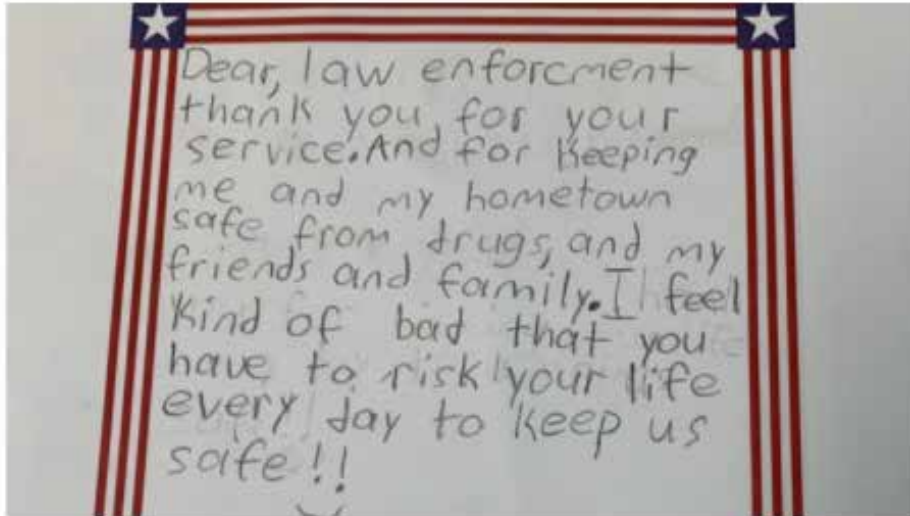 Dear, law enforcment
thank you for your
service. And for keeping
me and my hometown
safe from drugs, and my
friends and family. I feel
kind of bad that you
have to risk your life
every day to keep us
safe!!